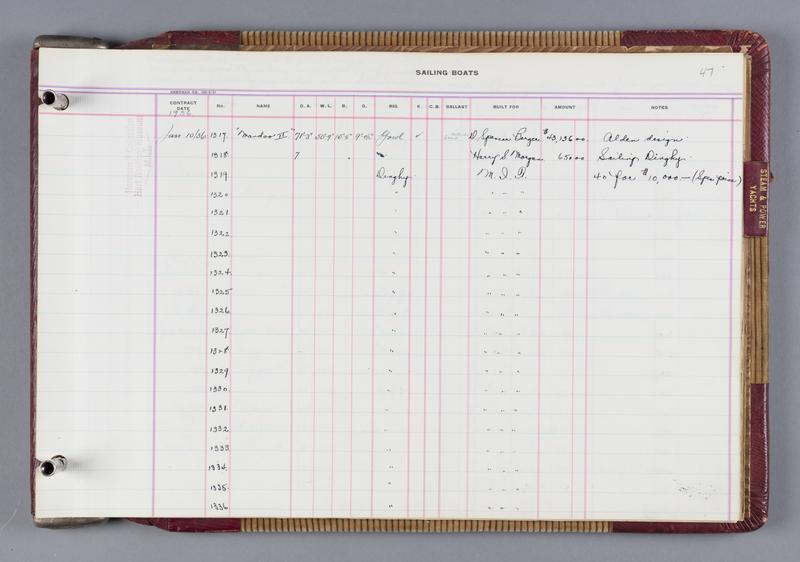 SAILING BOATS
47
CONTRACT DATE No. NAME O. A. W. L. B. D. RIG K. C.B. BALLAST BUILT FOR AMOUNT NOTES
1936
Jan 10/36 1317. "Mandoo II." Yawl ✓ D. Spencer Berger $43,136 00. Alden design.
1318. 7 " Harry S. Morgan 650 00 Sailing Dinghy.
1319. Dinghy. M. I. T. 40 for $10,000.— (Spec price)
1320 " " " "
1321. " " " "
1322 " " " "
1323. " " " "
1324. " " " "
1325 " " " "
1326. " " " "
1327. " " " "
1328. " " " "
1329 " " " "
1330. " " " "
1331. " " " "
1332. " " " "
1333. " " " "
1334. " " " "
1335. " " " "
1336 " " " "
STEAM & POWER
YACHTS